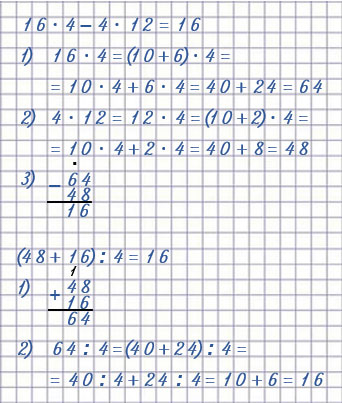 16 · 4 – 4 · 12 = 16
1) 16 · 4 = (10 + 6) · 4 =
= 10 · 4 + 6 · 4 = 40 + 24 = 64
2) 4 · 12 = 12 · 4 = (10 + 2) · 4 =
= 10 · 4 + 2 · 4 = 40 + 8 = 48
·
3) – 64
48
16
(48 + 16) : 4 = 16
1
1) + 48
16
64
2) 64 : 4 = (40 + 24) : 4 =
= 40 : 4 + 24 : 4 = 10 + 6 = 16